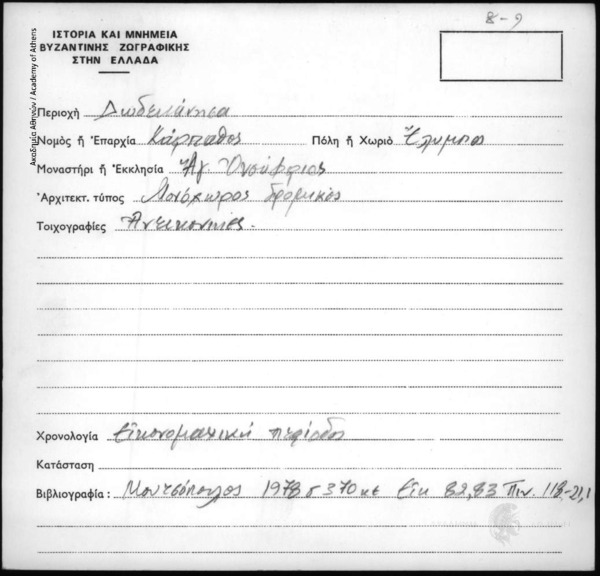 8-9
ΙΣΤΟΡΙΑ ΚΑΙ ΜΝΗΜΕΙΑ
ΒΥΖΑΝΤΙΝΗΣ ΖΩΓΡΑΦΙΚΗΣ
ΣΤΗΝ ΕΛΛΑΔΑ
Ακαδημία Αθηνών / Academy of Athens
Περιοχή Δωδεκάνησα
Νομὸς ἢ Ἐπαρχία Κάρπαθος Πόλη ἢ Χωριὸ Ἔλυμπος
Μοναστήρι ἢ Ἐκκλησία Ἁγ. Ὀνούφριος
Ἀρχιτεκτ. τύπος Μονόχωρος δρομικός
Τοιχογραφίες Ἀνεικονικές.
Χρονολογία Εἰκονομαχική περίοδος
Κατάσταση
Βιβλιογραφία : Μουτσόπουλος 1978 σ 370 κε Εἰκ 82,83 Πιν. 118-21,1